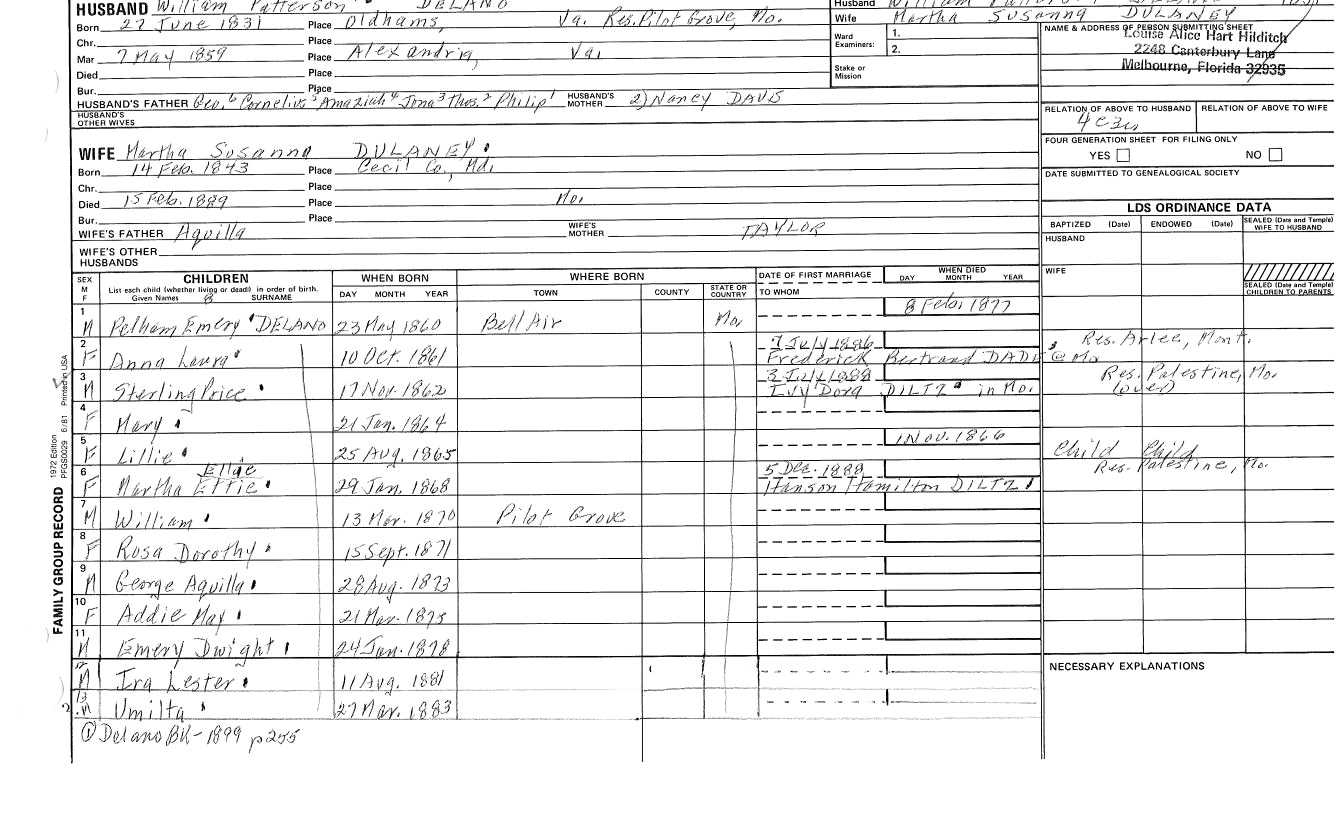 HUSBAND William Patterson DELANO
Husband William
Born 27 June 1831 Place Oldhams, Va. Res. Pilot Grove, Mo.
Wife Martha Susanna DULANEY
Chr. Place
Ward Examiners: 1. 2.
Mar 7 May 1859 Place Alexandria, Va.
Died Place
Stake or Mission
Bur. Place
NAME & ADDRESS OF PERSON SUBMITTING SHEET
Louise Alice Hart Hilditch
2248 Canterbury Lane
Melbourne, Florida 32935
HUSBAND'S FATHER Geo.6 Cornelius5 Amaziah4 Jona3 Thos.2 Philip1 HUSBAND'S MOTHER 2) Nancy DAVIS
HUSBAND'S OTHER WIVES
RELATION OF ABOVE TO HUSBAND RELATION OF ABOVE TO WIFE
4c3r
FOUR GENERATION SHEET FOR FILING ONLY
YES NO
DATE SUBMITTED TO GENEALOGICAL SOCIETY
WIFE Martha Susanna DULANEY
Born 14 Feb. 1843 Place Cecil Co., Md.
Chr. Place
Died 15 Feb. 1889 Place Mo.
Bur. Place
WIFE'S FATHER Aquilla WIFE'S MOTHER TAYLOR
WIFE'S OTHER HUSBANDS
LDS ORDINANCE DATA
BAPTIZED (Date) ENDOWED (Date) SEALED (Date and Temple) WIFE TO HUSBAND
HUSBAND
WIFE
SEALED (Date and Temple) CHILDREN TO PARENTS
SEX M F
CHILDREN
List each child (whether living or dead) in order of birth.
Given Names SURNAME
WHEN BORN DAY MONTH YEAR
WHERE BORN TOWN COUNTY STATE OR COUNTRY
DATE OF FIRST MARRIAGE TO WHOM
WHEN DIED DAY MONTH YEAR
1 M Pelham Emery DELANO 23 May 1860 Bell Air Mo. 8 Feb. 1877
2 F Anna Laura 10 Oct. 1861 7 July 1886 Frederick Bertrand DADE @ Mo Res. Arlee, Mont.
3 M Sterling Price 17 Nov. 1862 3 July 1888 Ivy Dora DILTZ in Mo. Res. Palestine, Mo. (over)
4 F Mary 21 Jan. 1864
5 F Lillie 25 Aug. 1865 1 Nov. 1866 Child Child
6 F Martha Effie 29 Jan. 1868 5 Dec. 1888 Hanson Hamilton DILTZ Res. Palestine, Mo.
7 M William 13 Mar. 1870 Pilot Grove
8 F Rosa Dorothy 15 Sept. 1871
9 M George Aquilla 28 Aug. 1873
10 F Addie May 21 Mar. 1875
11 M Emery Dwight 24 Jan. 1878
12 M Ira Lester 11 Aug. 1881
13 M Umilta 27 Mar. 1883
① Delano BK - 1899 p 255
NECESSARY EXPLANATIONS
FAMILY GROUP RECORD
1972 Edition PFGS0029 6/81 Printed in USA